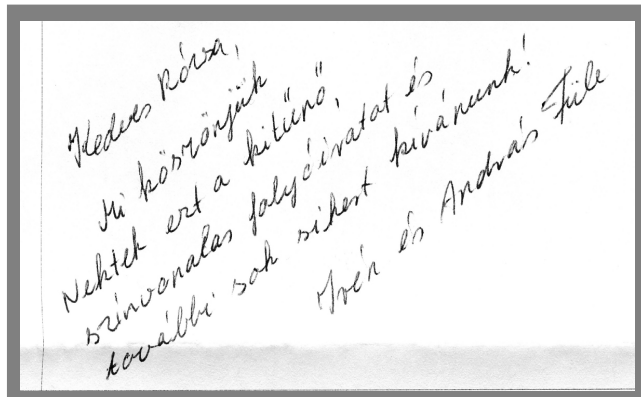 Kedves Rózsa,
Mi köszönjük
Nektek ezt a kitűnő,
színvonalas folyóiratot és
további sok sikert kívánunk!
Irén és András Füle